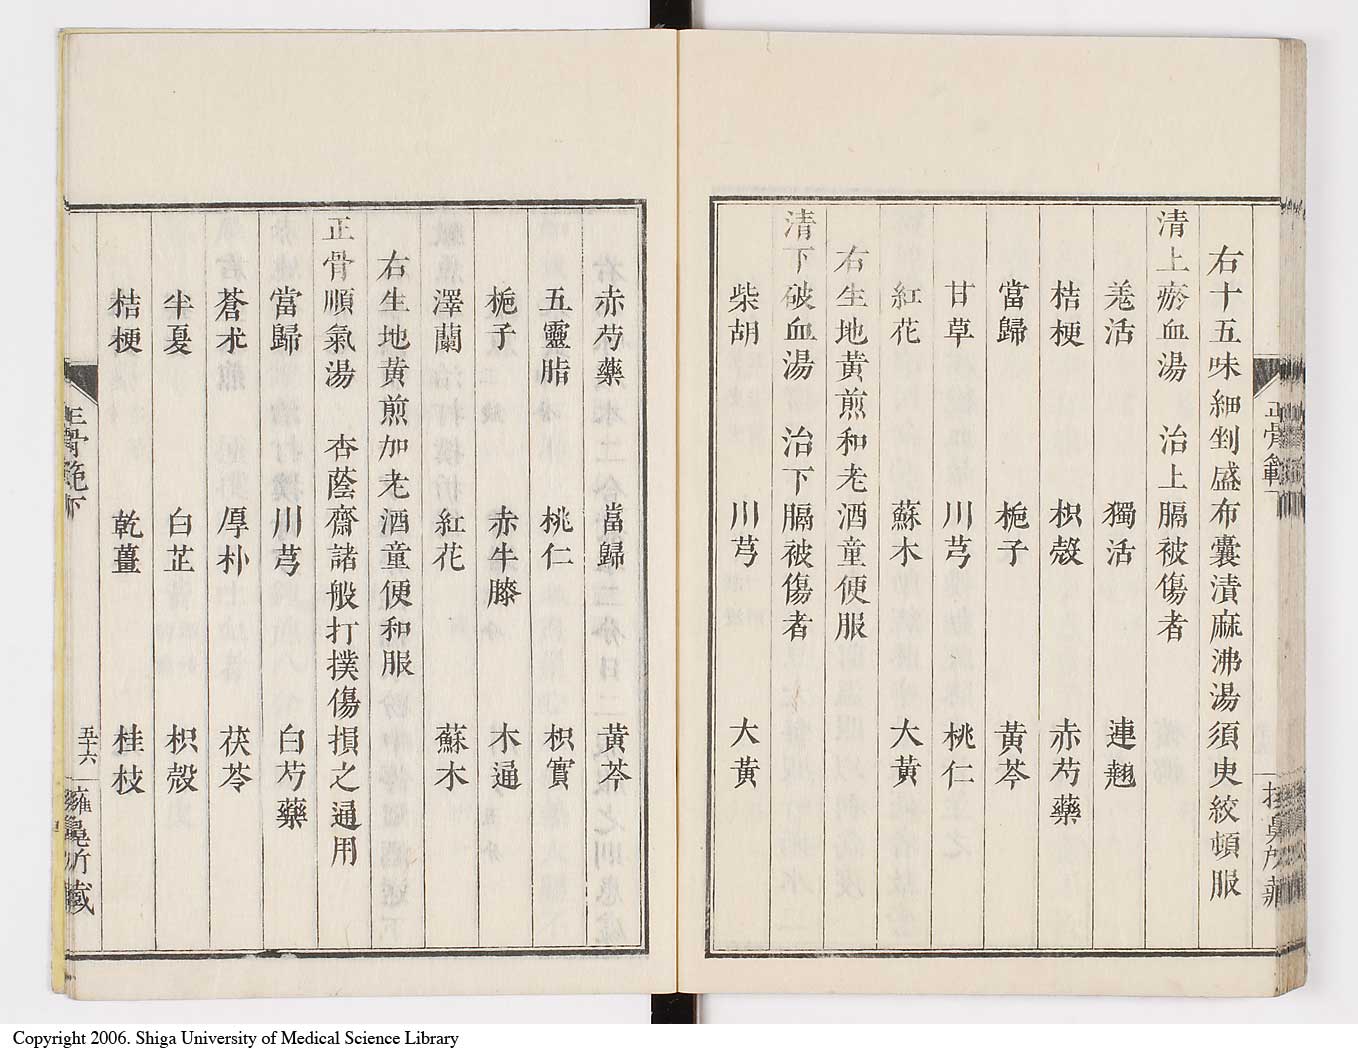 右十五味細剉盛布囊漬麻沸湯須臾絞頓服
清上瘀血湯　治上膈被傷者
羗活　獨活　連翹
桔梗　枳殼　赤芍藥
當歸　梔子　黃芩
甘草　川芎　桃仁
紅花　蘇木　大黃
右生地黃煎和老酒童便服
清下破血湯　治下膈被傷者
柴胡　川芎　大黃
正骨範
赤芍藥　當歸　黃芩
五靈脂　桃仁　枳實
梔子　赤牛膝　木通
澤蘭　紅花　蘇木
右生地黃煎加老酒童便和服
正骨順氣湯　杏蔭齋諸般打撲傷損之通用
當歸　川芎　白芍藥
蒼朮　厚朴　茯苓
半夏　白芷　枳殼
桔梗　乾薑　桂枝
正骨範下　五十六
Copyright 2006. Shiga University of Medical Science Library